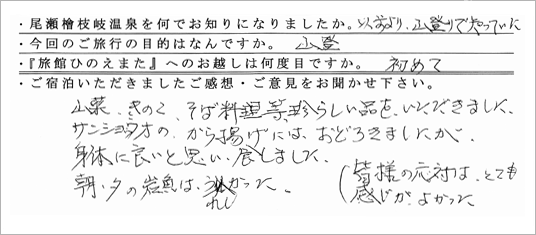 ・尾瀬檜枝岐温泉を何でお知りになりましたか。以前より、山登りで知っていた
・今回のご旅行の目的はなんですか。 山登
・『旅館ひのえまた』へのお越しは何度目ですか。 初めて
・ご宿泊いただきましたご感想・ご意見をお聞かせ下さい。
山菜、きのこ、そば料理等、珍らしい品を、いただきました、
サンショウオの、から揚げには、おどろきましたが、
身体に良いと思い、食しました、
朝、夕の岩魚は、うれしかった、
(皆様の応対は、とても
感じが、よかった